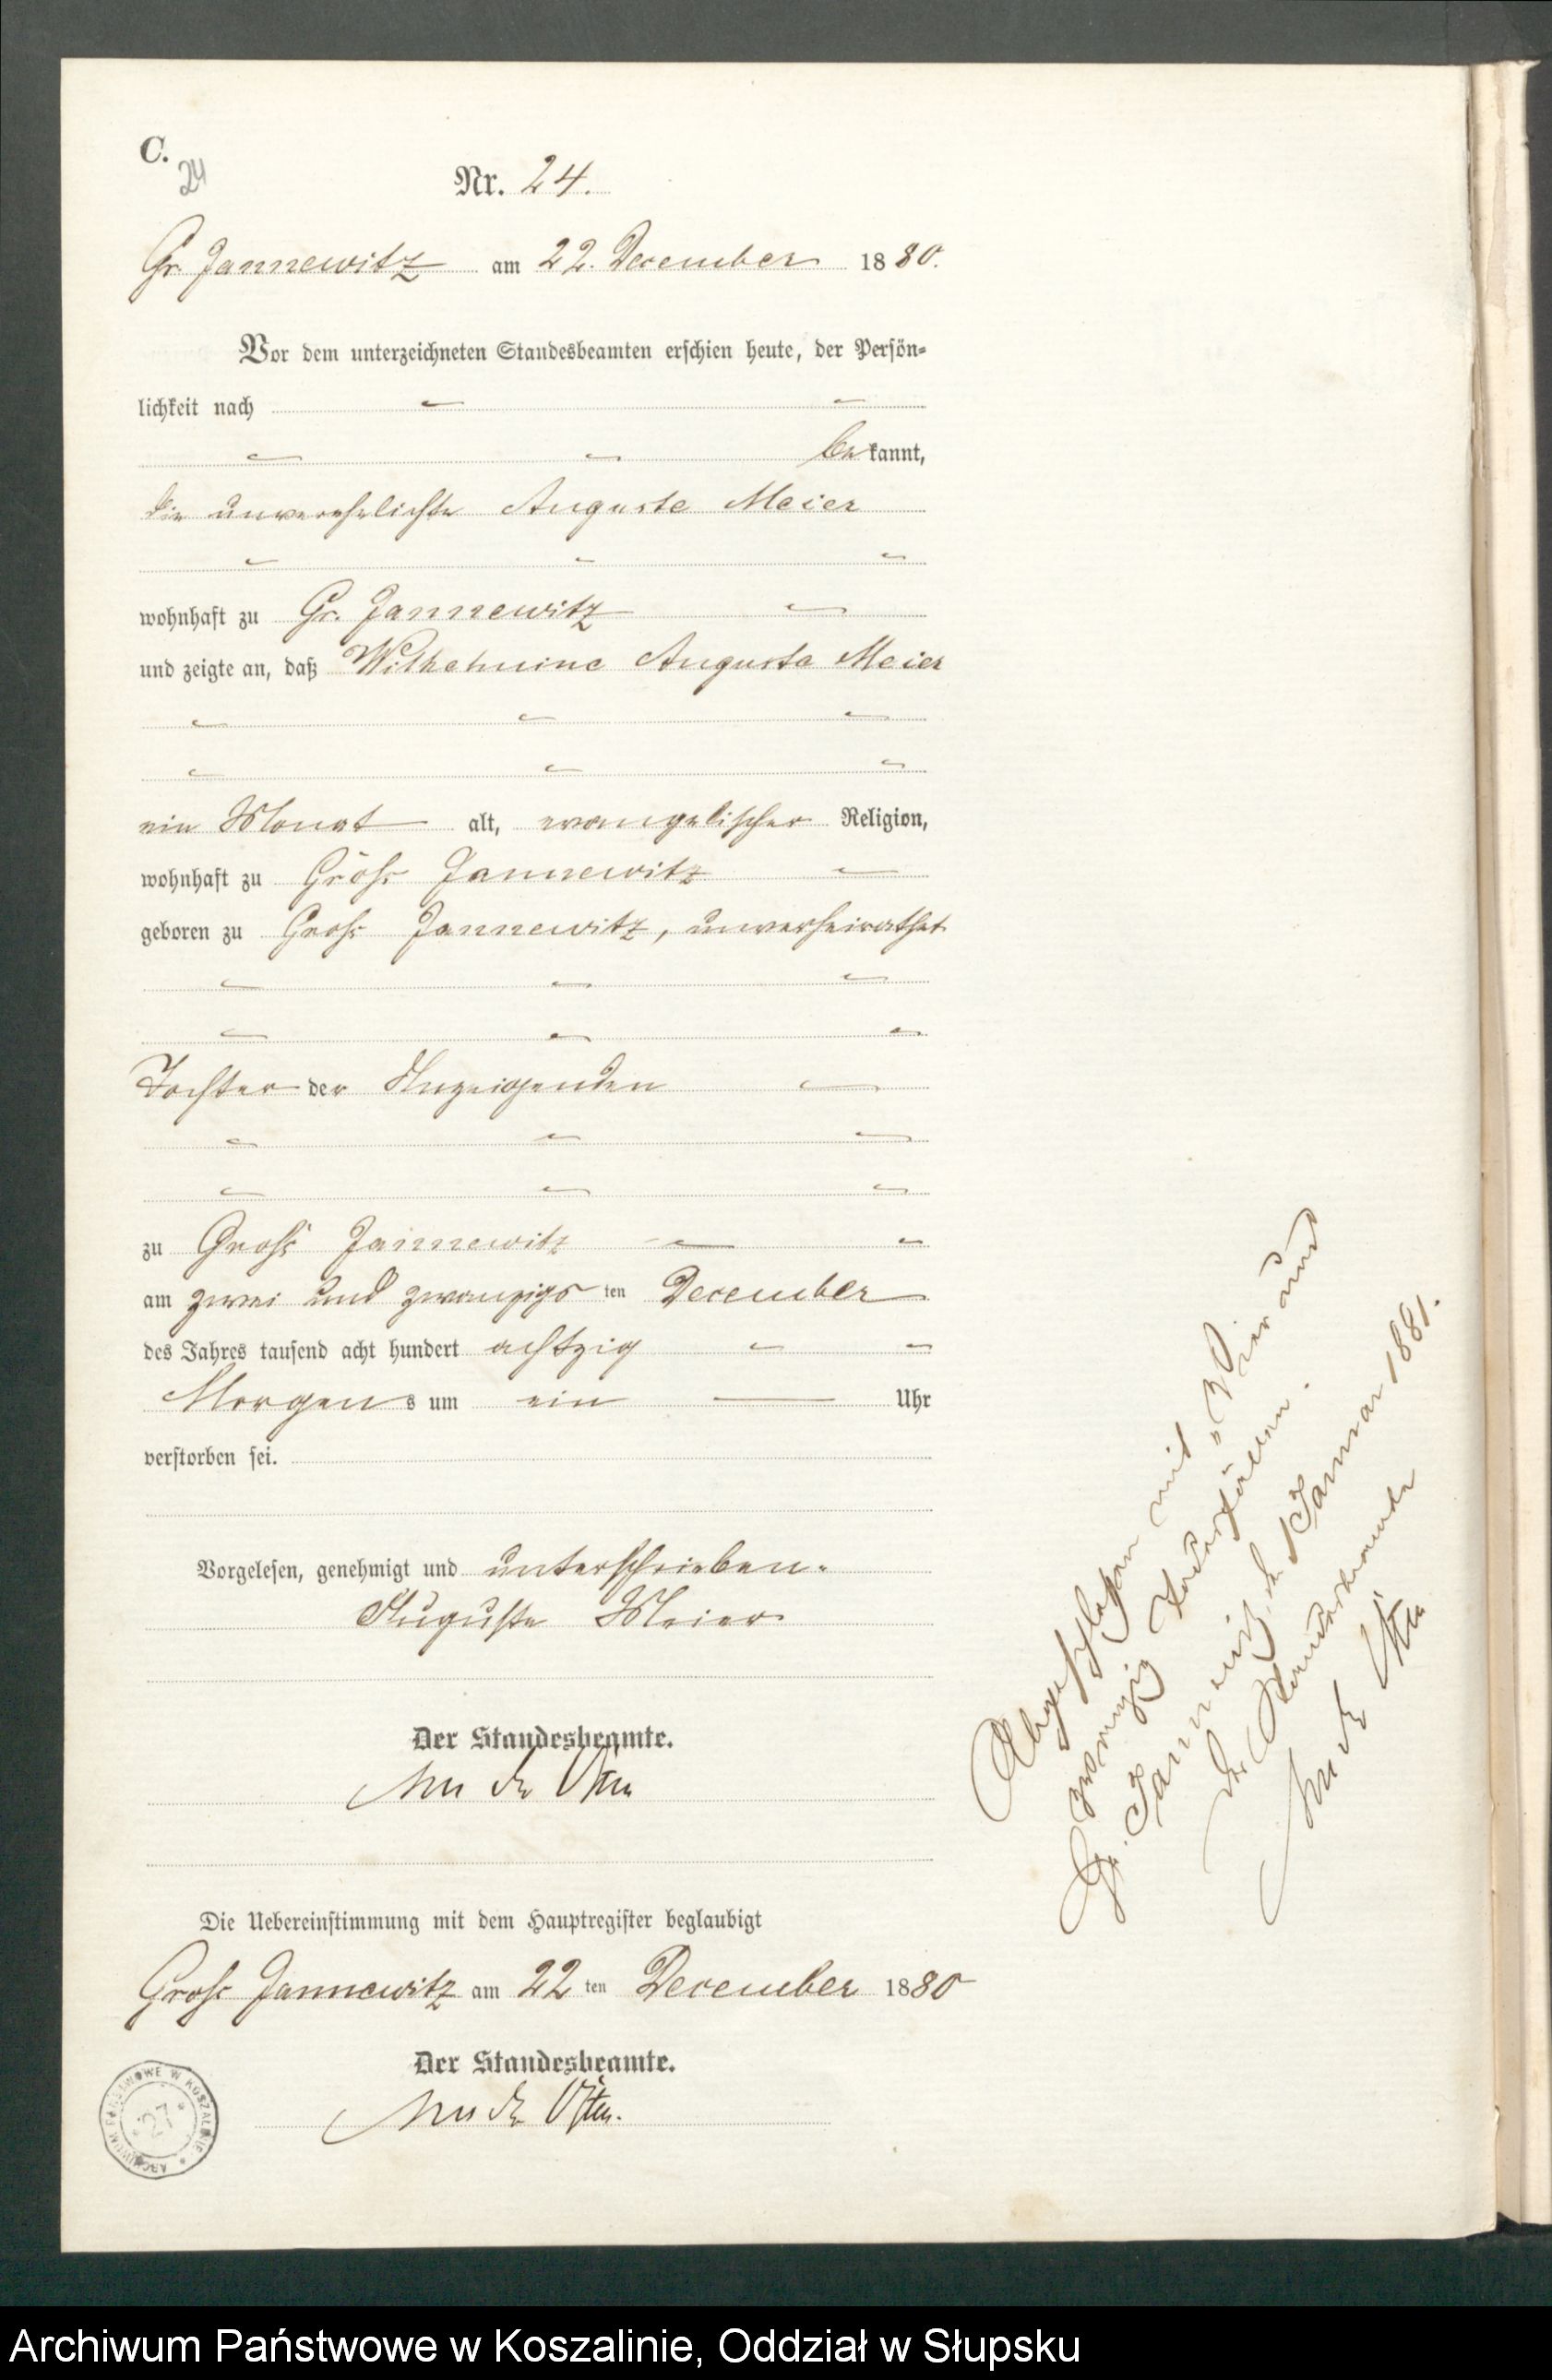 C.
24
Nr. 24.
Gr. Jannewitz am 22. December 1880.
Vor dem unterzeichneten Standesbeamten erschien heute, der Persön-
lichkeit nach
bekannt,
die unverehelichte Auguste Meier
wohnhaft zu Gr. Jannewitz
und zeigte an, daß Wilhelmine Auguste Meier
ein Monat alt, evangelischer Religion,
wohnhaft zu Groß Jannewitz
geboren zu Groß Jannewitz, unverheirathet
Tochter der Anzeigenden
zu Groß Jannewitz
am zwei und zwanzigsten December
des Jahres tausend acht hundert achtzig
Morgens um ein Uhr
verstorben sei.
Vorgelesen, genehmigt und unterschrieben.
Auguste Meier
Der Standesbeamte.
von der Osten
Die Uebereinstimmung mit dem Hauptregister beglaubigt
Groß Jannewitz am 22ten December 1880
Der Standesbeamte.
von der Osten.
Abgeschlossen mit "Vier und
zwanzig" Sterbefällen.
Gr. Jannewitz, d. 1 Januar 1881.
Der Standesbeamte
von der Osten
ARCHIWUM PAŃSTWOWE W KOSZALINIE
27
Archiwum Państwowe w Koszalinie, Oddział w Słupsku